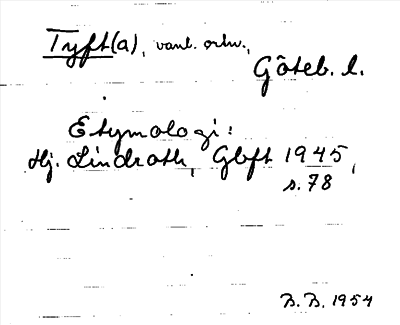 Tyft(a), vanl. ortn.,
Göteb. l.
Etymologi:
Hj. Lindroth, Gbft 1945,
s. 78
B. B. 1954